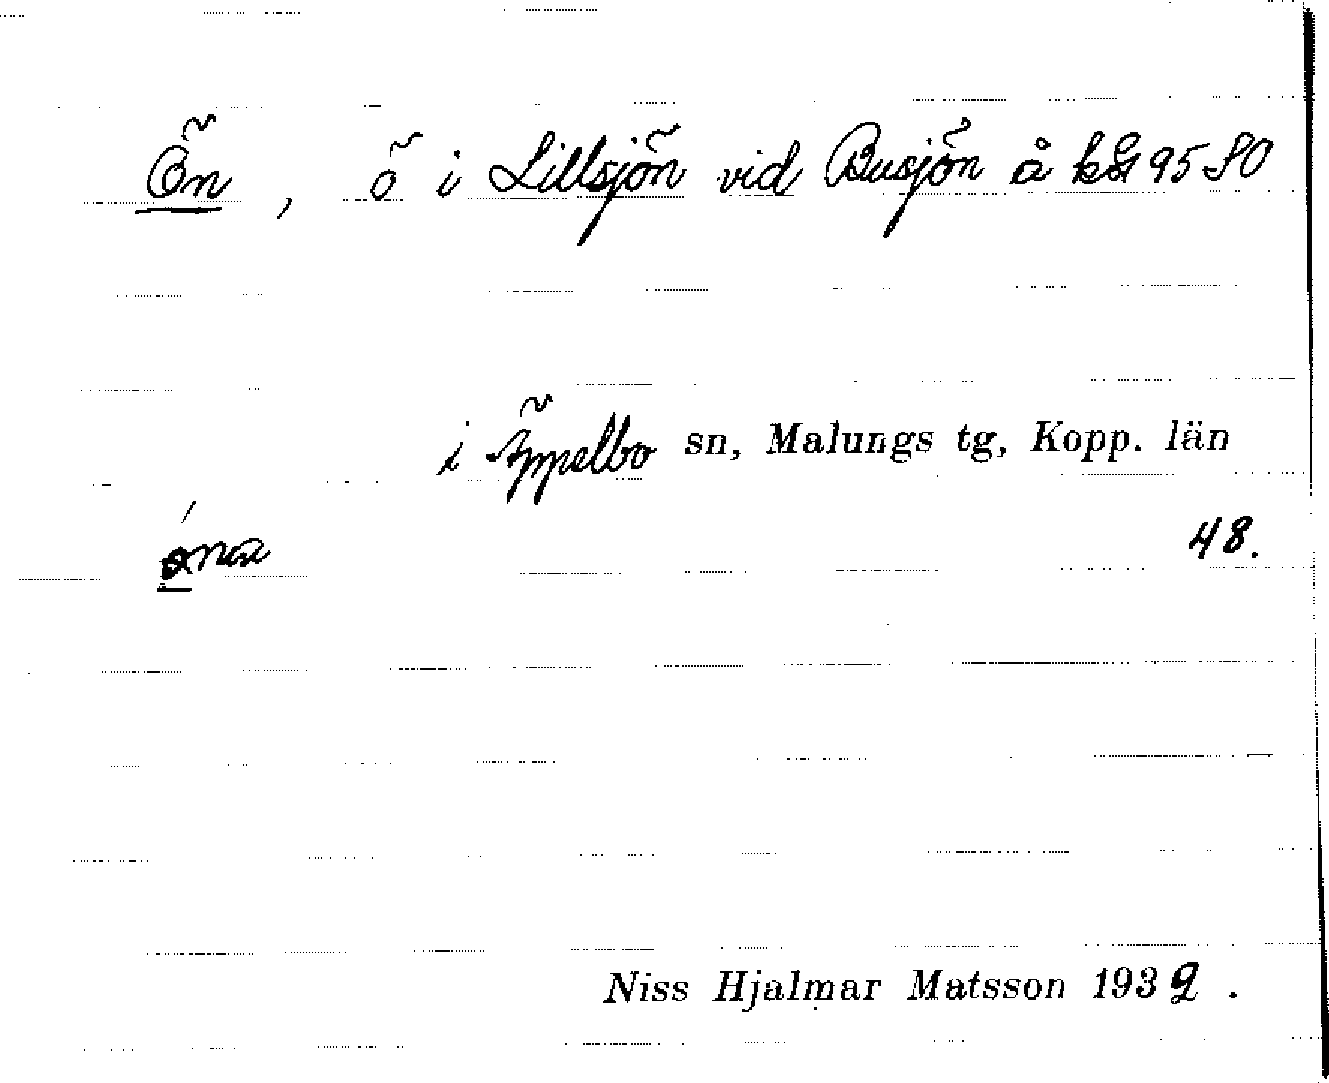 Ön, ö i Lillsjön vid Busjön å kbl 95 SO
i Äppelbo sn, Malungs tg, Kopp. län
48.
Niss Hjalmar Matsson 1932.